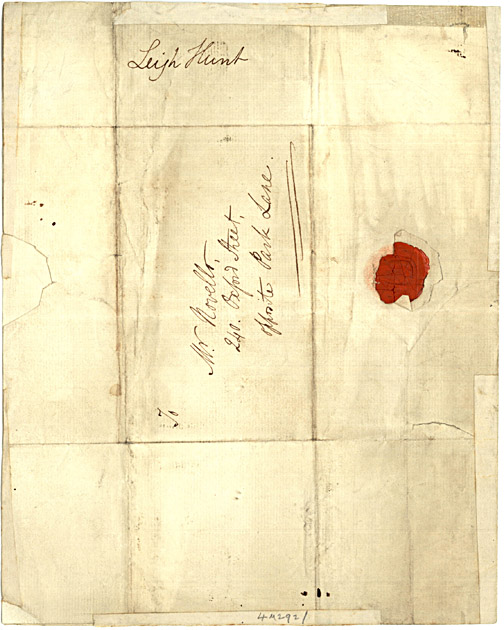 Leigh Hunt
To
Mr. Novello,
240. Oxford Street,
opposite Park Lane.